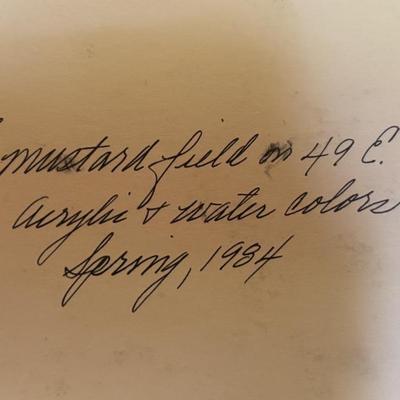 mustard field on 49 E.
Acrylic & water colors
Spring, 1984